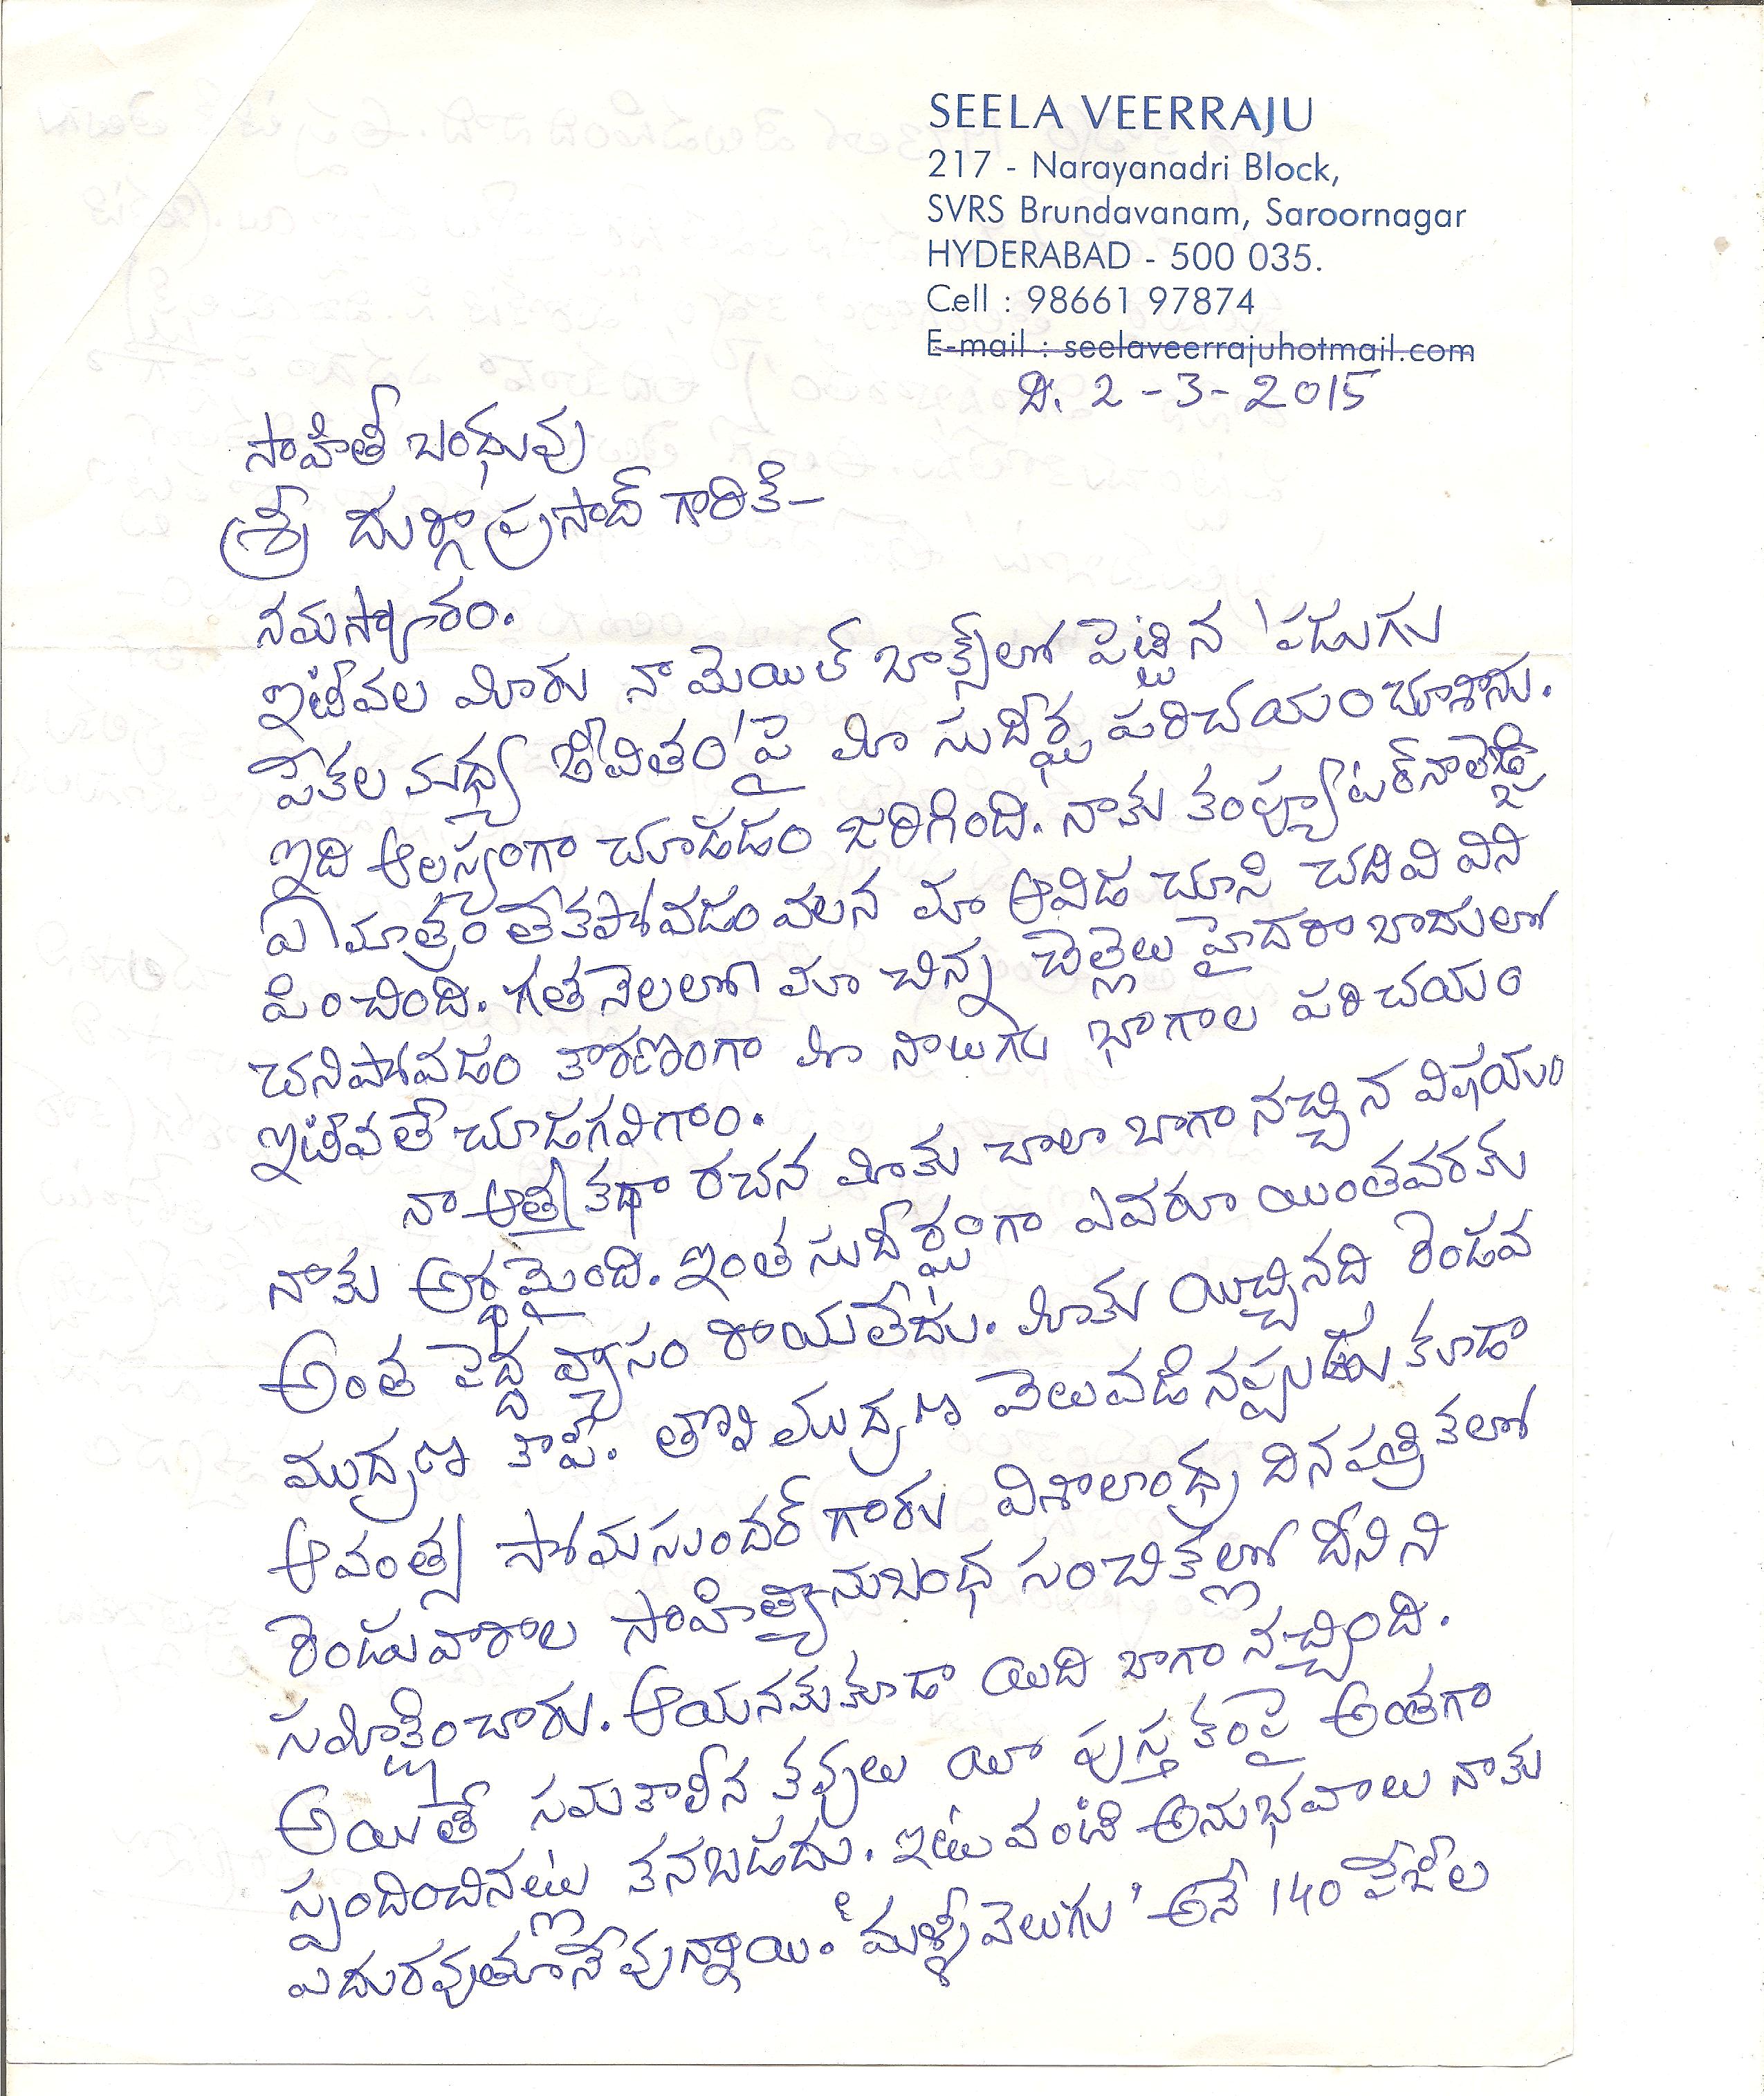 SEELA VEERRAJU
217 - Narayanadri Block,
SVRS Brundavanam, Saroornagar
HYDERABAD - 500 035.
Cell : 98661 97874
E-mail : seelaveerrajuhotmail.com
ది. 2-3-2015
సాహితీ బంధువు
శ్రీ దుర్గాప్రసాద్ గారికి-
నమస్కారం.
ఇటీవల మీరు నా మెయిల్ బాక్స్‌లో పెట్టిన 'పడుగు
పేకల మధ్య జీవితం'పై మీ సుదీర్ఘ పరిచయం చూశాను.
ఇది ఆలస్యంగా చూడడం జరిగింది. నాకు కంప్యూటర్ నాలెడ్జి
ఏ మాత్రం లేకపోవడం వలన మా ఆవిడ చూసి చదివి విని
పించింది. గతనెలలో మా చిన్న చెల్లెలు హైదరాబాదులో
చనిపోవడం కారణంగా మీ నాలుగు భాగాల పరిచయం
ఇటీవలే చూడగలిగాం.
నా ఆత్మకథా రచన మీకు చాలా బాగా నచ్చిన విషయం
నాకు అర్థమైంది. ఇంత సుదీర్ఘంగా ఎవరూ యింతవరకు
అంత పెద్ద వ్యాసం రాయలేదు. మీకు యిచ్చినది రెండవ
ముద్రణ కాపీ. తొలి ముద్రణ వెలువడినప్పుడు కూడా
ఆవంత్స సోమసుందర్ గారు విశాలాంధ్ర దినపత్రికలో
రెండువారాల సాహిత్యానుబంధ సంచికల్లో దీనిని
సమీక్షించారు. ఆయనకుకూడా యిది బాగా నచ్చింది.
అయితే సమకాలీన కవులు యీ పుస్తకంపై అంతగా
స్పందించినట్లు కనబడదు. ఇటువంటి అనుభవాలు నాకు
ఎదురవుతూనేవున్నాయి. 'మళ్ళీవెలుగు' అనే 140 పేజీల